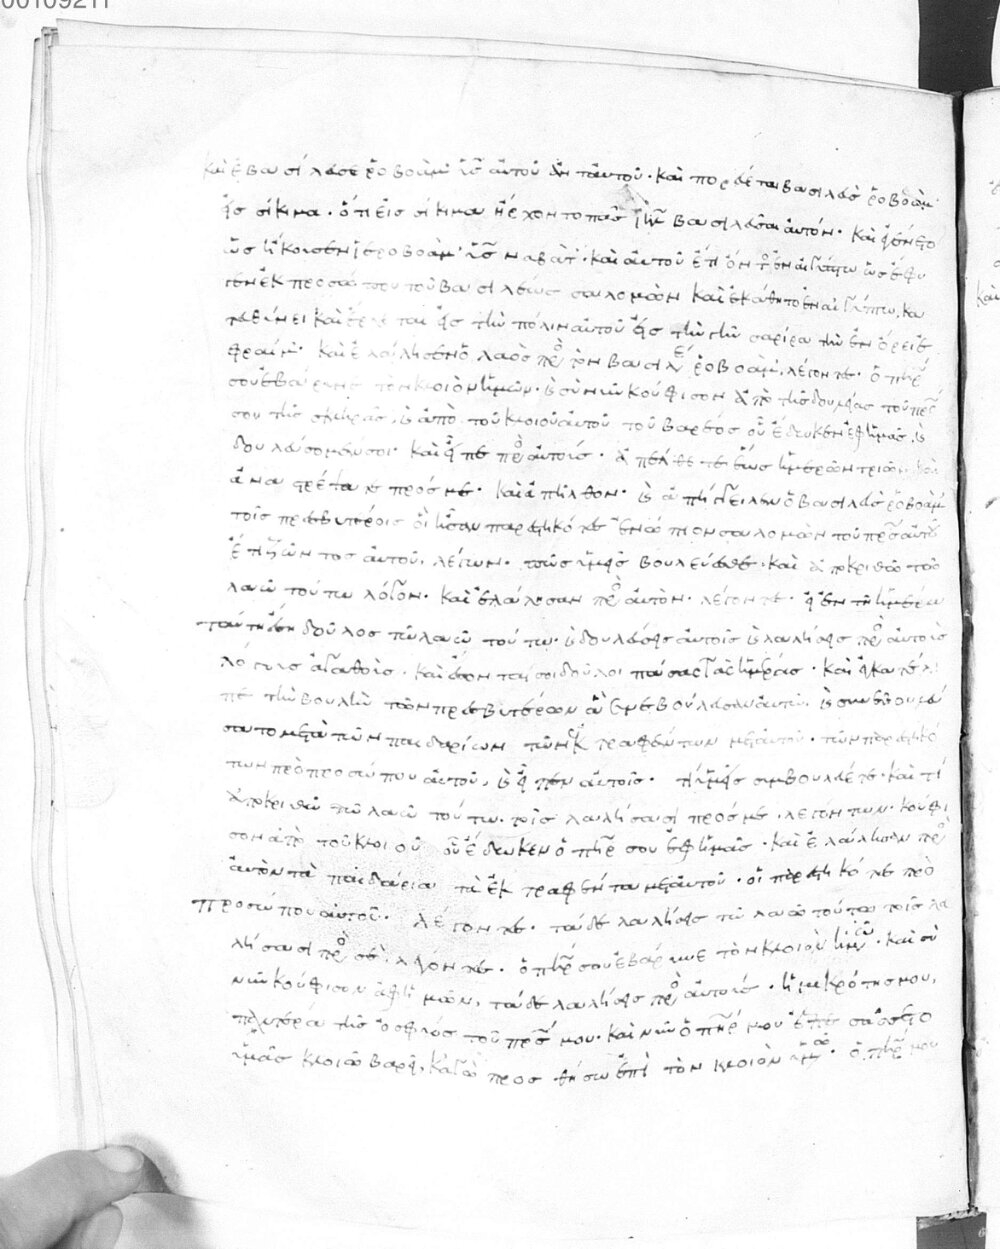 00109211
καὶ ἐβασίλευσε ῥοβοὰμ υἱὸς αὐτοῦ ἀντ' αὐτοῦ· καὶ πορεύεται βασιλεὺς ῥοβοὰμ
εἰς σίκιμα· ὅτι εἰς σίκιμα ἤρχοντο πᾶς ἰηλ βασιλεῦσαι αὐτόν· καὶ ἐγένετο
ὡς ἤκουσεν ἱεροβοὰμ υἱὸς ναβάτ· καὶ αὐτοῦ ἔτι ὄντος ἐν αἰγύπτω ὡς ἔφυ
γεν ἐκ προσώπου τοῦ βασιλέως σαλομὼν καὶ ἐκάθητο ἐν αἰγύπτω, κα
τευθύνει καὶ ἔρχεται εἰς τὴν πόλιν αὐτοῦ εἰς τὴν γῆν σαρίρα τὴν ἐν ὄρει ἐ
φραίμ· καὶ ἐλάλησεν ὁ λαὸς πρὸς τὸν βασιλέα ῥοβοὰμ, λέγοντες· ὁ πηρ
σου ἐβάρυνε τὸν κλοιὸν ἡμῶν· κ σὺ νῦν κούφισον ἀπὸ τῆς δουλείας τοῦ πρς
σου τῆς σκληρᾶς, κ ἀπὸ τοῦ κλοιοῦ αὐτοῦ τοῦ βαρέος οὗ ἔδωκεν ἐφ ἡμᾶς, κ
δουλεύσομέν σοι· καὶ εἶπε πρὸς αὐτούς· ἀπέλθετε ἕως ἡμερῶν τριῶν καὶ
ἀναστρέψατε πρός με· καὶ ἀπῆλθον· κ ἀπήγγειλεν ὁ βασιλεὺς ῥοβοὰμ
τοῖς πρεσβυτέροις οἳ ἦσαν παρεστηκότες ἐνώπιον σαλομὼν τοῦ πρς αὐτοῦ
ἔτι ζῶντος αὐτοῦ, λέγων· πῶς ὑμεῖς βουλεύεσθε· καὶ ἀποκριθῶ τῶ
λαῶ τούτω λόγον· καὶ ἐλάλησαν πρὸς αὐτὸν· λέγοντες· εἰ ἐν τῆ ἡμέρα
ταύτη ἔση δοῦλος τῶ λαῶ τούτω· κ δουλεύσεις αὐτοῖς κ λαλήσεις πρὸς αὐτοὺς
λόγους ἀγαθοὺς· καὶ ἔσονταί σοι δοῦλοι πάσας τὰς ἡμέρας· καὶ ἐγκατέλι
πε τὴν βουλὴν τῶν πρεσβυτέρων ἃ συνεβουλεύσαντο αὐτῶ· κ συνεβουλεύ
σατο μετὰ τῶν παιδαρίων τῶν ἐκτραφέντων μετ αὐτοῦ· τῶν παρεστηκό
των πρὸ προσώπου αὐτοῦ, κ εἶπεν αὐτοῖς· τί ὑμεῖς συμβουλεύετε· καὶ τί
ἀποκριθῶ τῶ λαῶ τούτω· τοῖς λαλήσασι πρός με, λεγόντων· κούφι
σον ἀπὸ τοῦ κλοιοῦ οὗ ἔδωκεν ὁ πηρ σου ἐφ ἡμᾶς· καὶ ἐλάλησαν πρὸς
αὐτὸν τὰ παιδάρια τὰ ἐκτραφέντα μετ αὐτοῦ· οἱ παρεστηκότες πρὸ
προσώπου αὐτοῦ· λέγοντες· τάδε λαλήσεις τῶ λαῶ τούτω τοῖς λα
λήσασι πρὸς σὲ· λέγοντες· ὁ πηρ σου ἐβάρυνε τὸν κλοιὸν ἡμῶν· καὶ σὺ
νῦν κούφισον ἀφ ἡμῶν, τάδε λαλήσεις πρὸς αὐτούς· ἡ μικρότης μου,
παχυτέρα τῆς ὀσφύος τοῦ πρς μου· καὶ νῦν ὁ πηρ μου ἐπεσάσσετο
ὑμᾶς κλοιῶ βαρεῖ, κἀγὼ προσθήσω ἐπὶ τὸν κλοιὸν ὑμῶν· ὁ πηρ μου